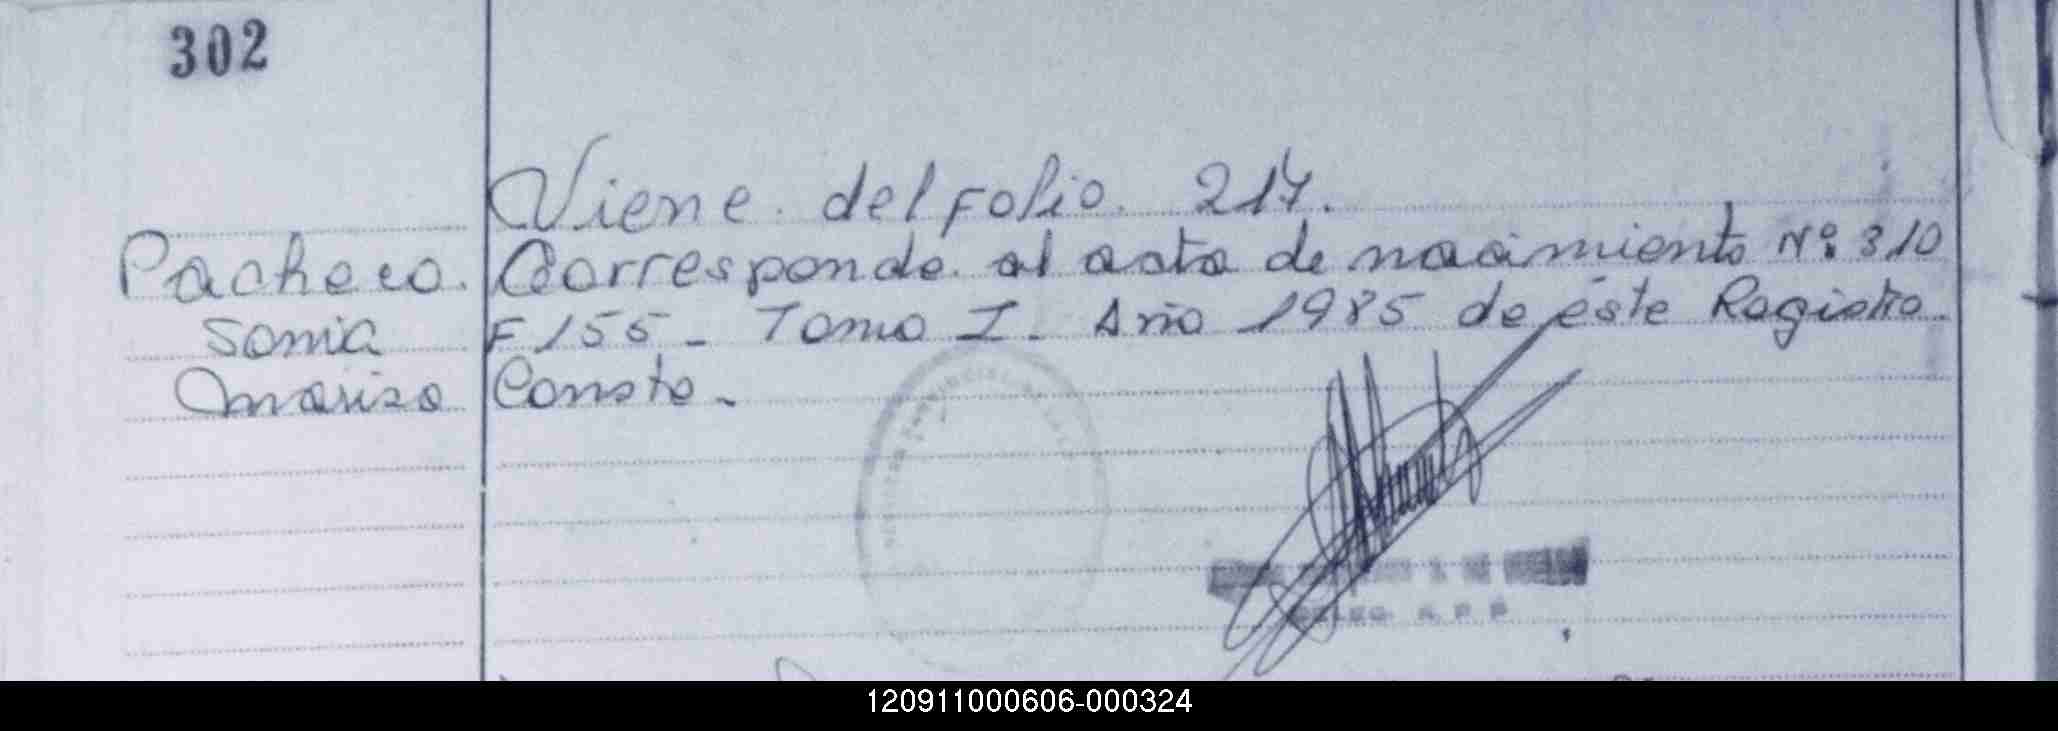 302
Viene del Folio. 217.
Pacheco. Corresponde al acta de nacimiento Nº 310
Sonia F 155 - Tomo I - Año 1985 de éste Registro.
Marisa Conste.-
120911000606-000324